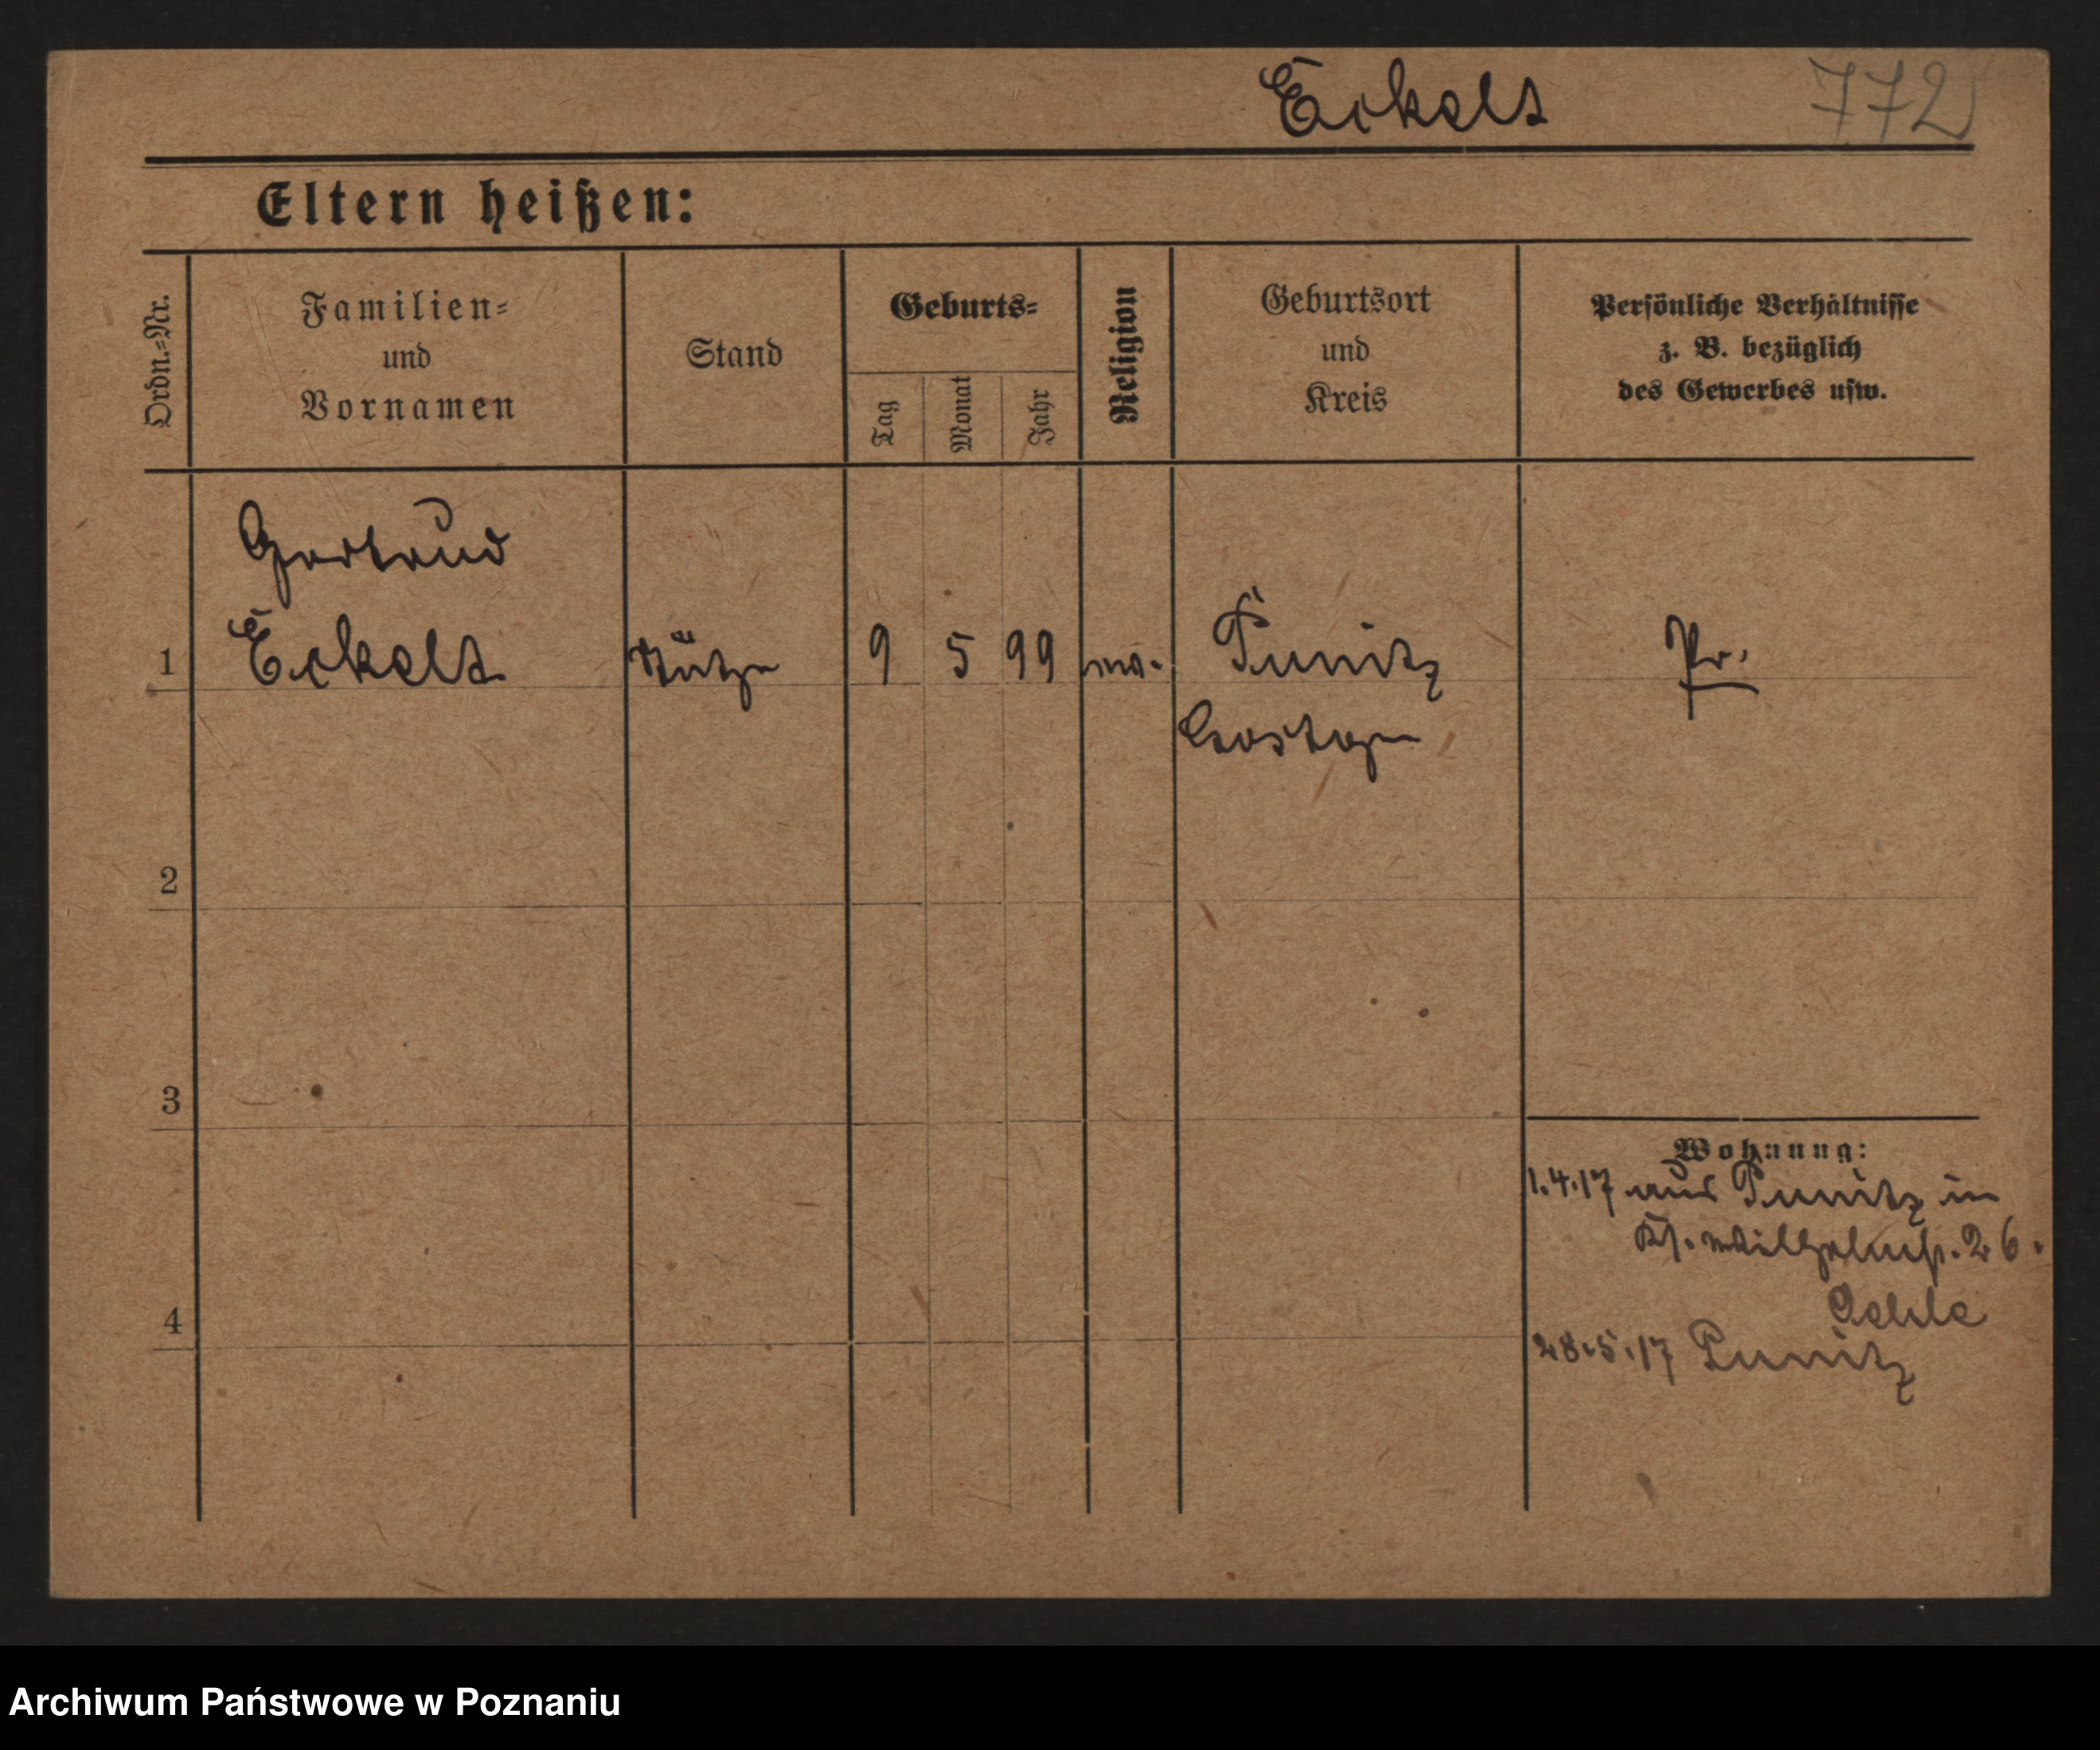 Eckelt 772
Eltern heißen:
Ordn.=Nr.
Familien=
und
Vornamen
Stand
Geburts=
Tag
Monat
Jahr
Religion
Geburtsort
und
Kreis
Persönliche Verhältnisse
z. B. bezüglich
des Gewerbes usw.
Gertrud
1 Eckelt Stütze 9 5 99 ev. Punitz Pr.
Gostyn
2
3
Wohnung:
1.4.17 aus Punitz in
Wilhelmstr. 26.
4
28.5.17 Punitz
Archiwum Państwowe w Poznaniu